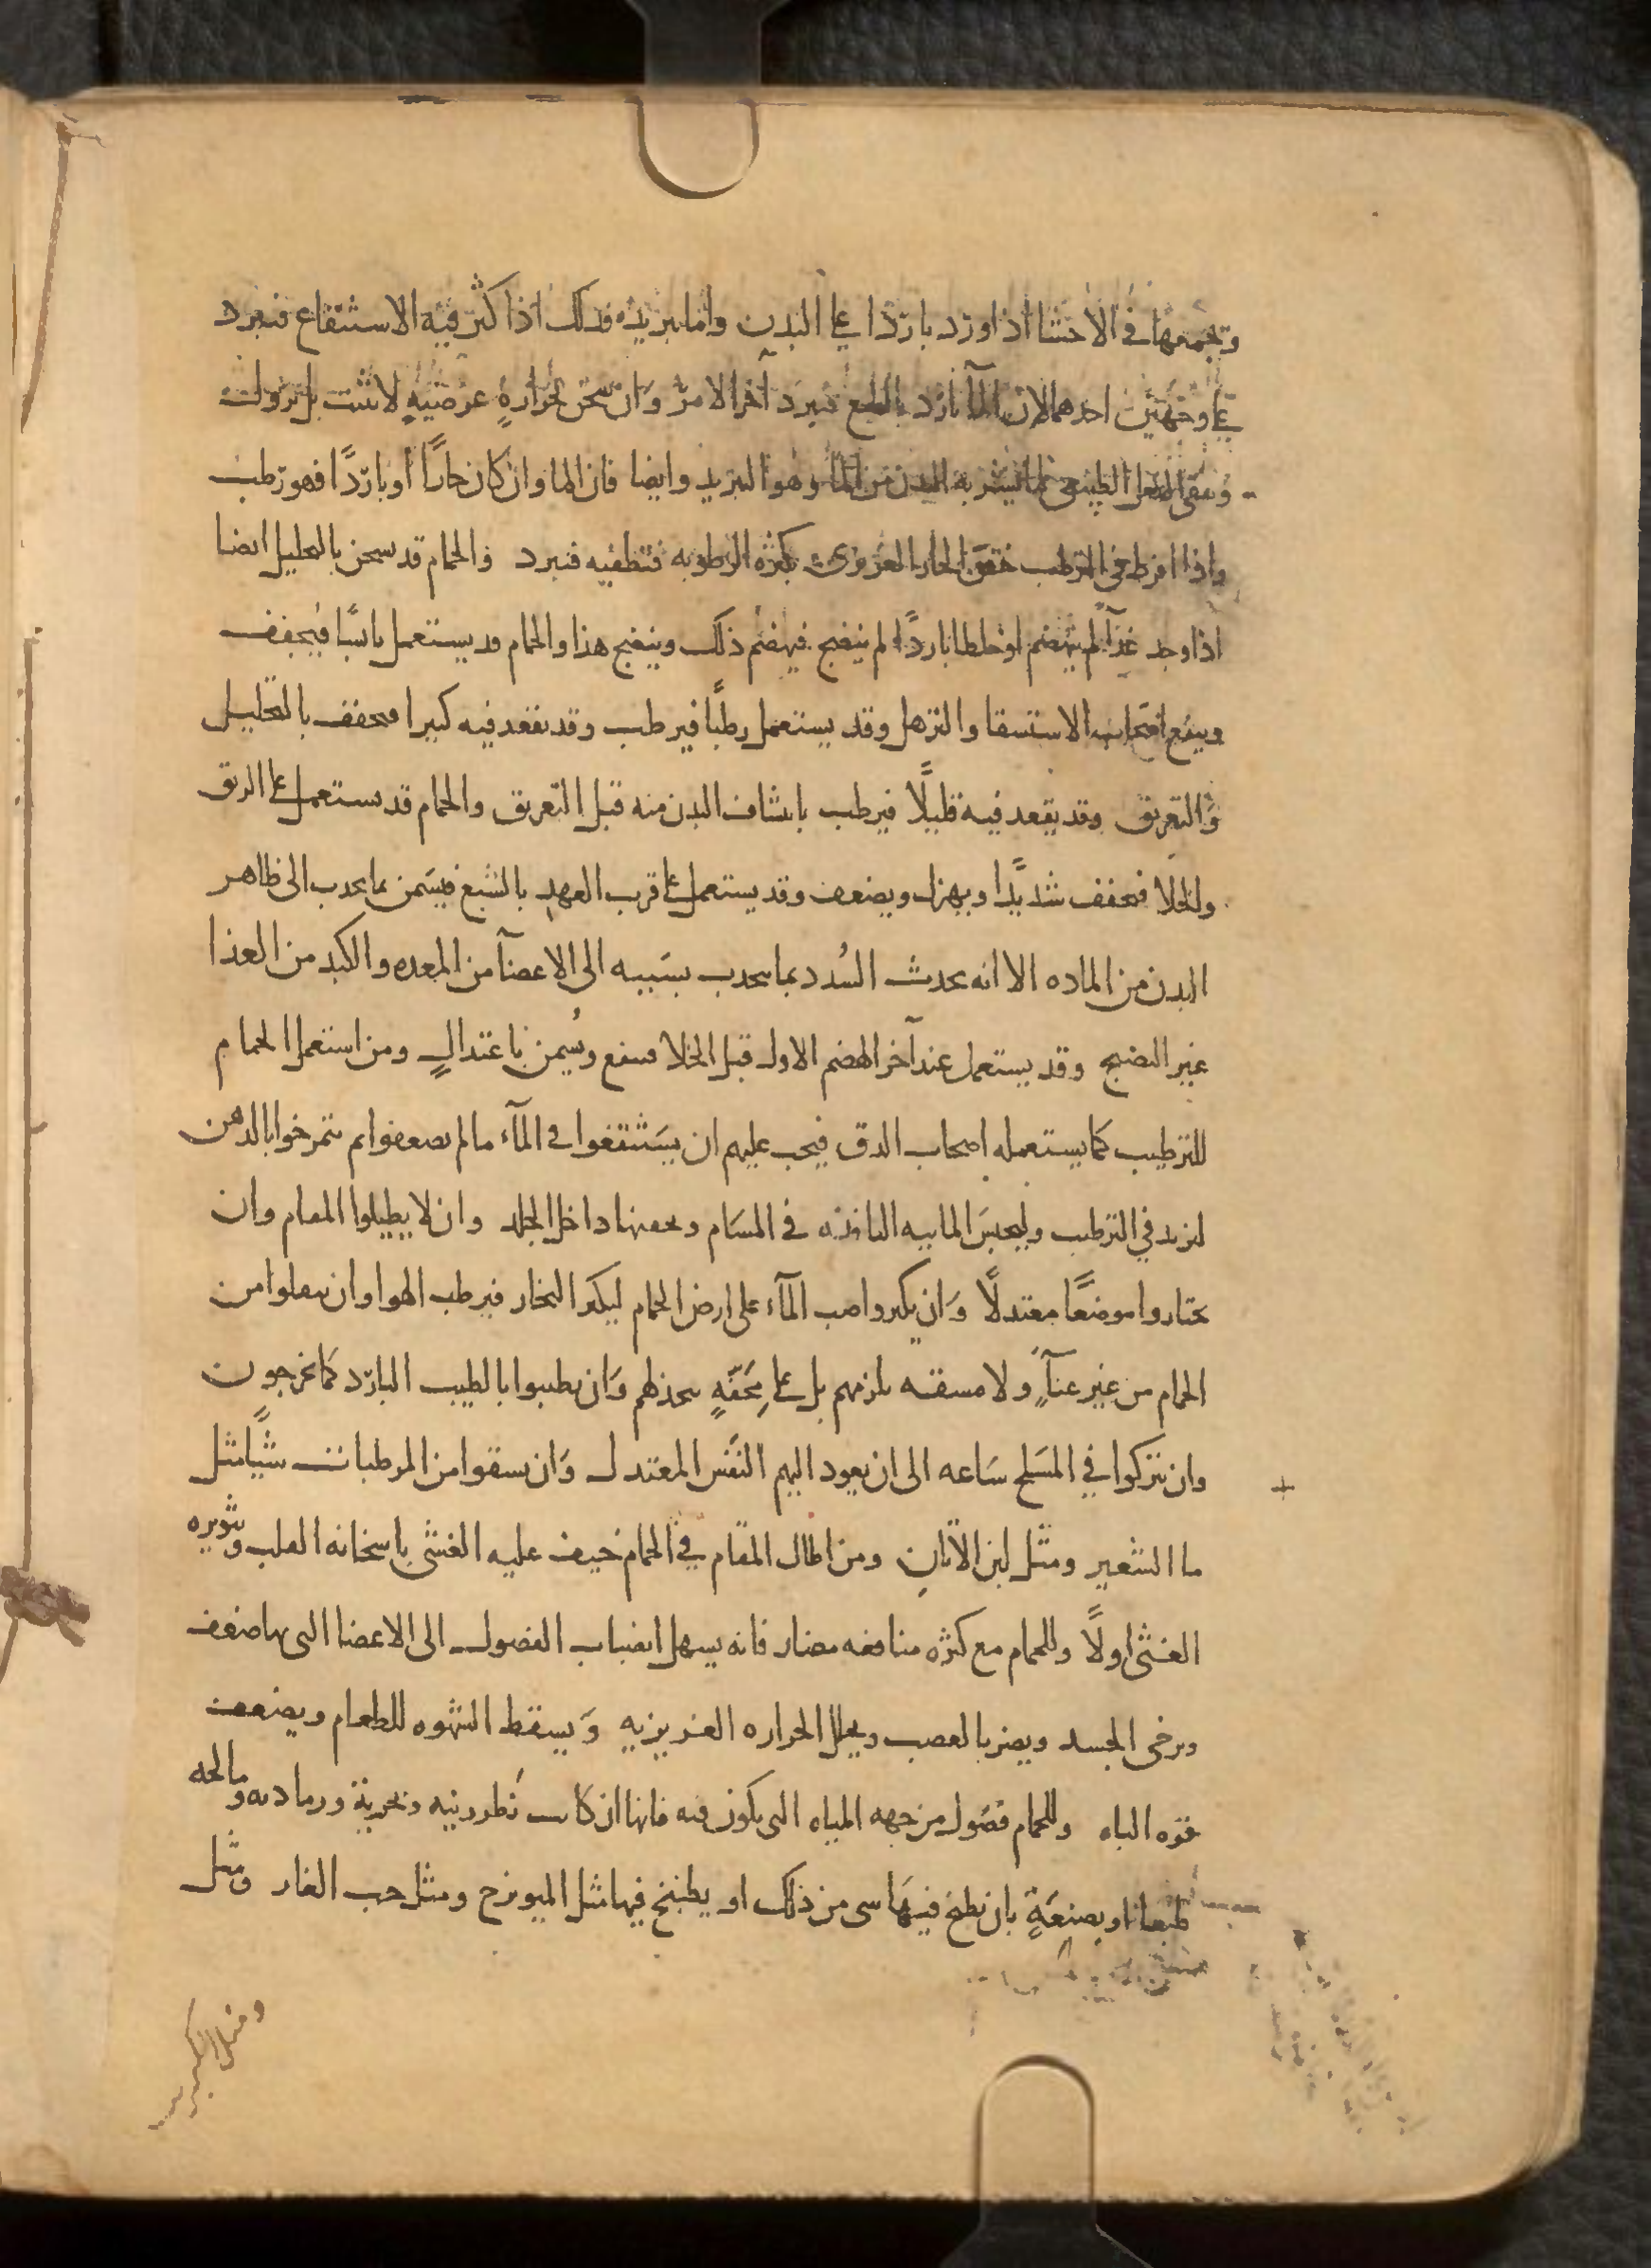 وتجمعها في الاحشا اذا ورد باردا على البدن واما تبريده فذلك اذا كثر فيه الاستنقاع فتبرد
على وجهين احدهما لان المآ بارد بالطبع فيبرد آخر الامر وَان سخن بحرارةٍ عرضيّهٍ لا تثبت بل تزول
ويبقى الفعل الطبيعى لما تشربه البدن من المآ وهو التبريد وايضا فان الما وان كان حارًا أو باردًا فهو رطب
واذا افرط فى الترطيب خنق الحار الغريزى بكثره الرطوبه فتطفيه فتبرد والحمام قد يسخن بالتحليل ايضا
اذا وجد غذآً لم ينهضم او خلطا باردًا لم ينضج فيهضم ذلك وينضج هذا والحمام قد يستعمل يابسًا فيجفف
وينفع اصحاب الاستسقا والترهل وقد يستعمل رطبًا فيرطب وقد يقعد فيه كثيرا فيجفف بالتحليل
وَالتعريق وقد يقعد فيه قليلًا فيرطب بانتشاف البدن منه قبل التعريق والحمام قد يستعمل على الريق
والخلا فيجفف شديدًا ويهزل ويضعف وقد يستعمل على قرب العهد بالشبع فيسَمن بما يجذب الى ظاهر
البدن من الماده الا انه يحدث السُدد بما يجذب بسَببه الى الاعضآ من المعده والكبد من الغذا
غير النضيج وقد يستعمل عند آخر الهضم الاول قبل الخلا فينفع ويُسمن باعتدالٍ ومن استعمل الحمام
للترطيب كما يستعمله اصحاب الدق فيجب عليهم ان يسَتنقعوا في المآء ما لم يضعفوا ثم يتمرخوا بالدهن
ليزيد في الترطيب وليحبسَ المائيه النافذه في المسَام ويحقنها داخل الجلد وان لا يطيلوا المقام وان
يختاروا موضعًا معتدلًا وَان يكثروا صب المآء على ارض الحمام ليكثر البخار فيرطب الهوا وان ينقلوا من
الحمام من غير عنآءٍ ولا مشقه تلزمهم بل على مِحَفّهٍ تتخذ لهم وَان يطيبوا بالطيب البارد كما يخرجون
وان يتركوا في المَسلخ سَاعه الى ان يعود اليهم النفَس المعتدل وَان يسقوا من المرطبات شيًا مثل
ما الشعير ومثل لبن الاتانِ ومن اطال المقام في الحمام خيف عليه الغشى باسخانه القلب وتثويره
الغثى اولًا وللحمام مع كثره منافعه مضار فانه يسهل انصباب الفضول الى الاعضا التى بها ضعف
ويرخى الجسد ويضر بالعصب ويحلل الحراره الغريزيه وَيسقط الشهوه للطعام ويضعف
قوه الباه وللحمام فضول من جهه المياه التى يكون فيه فانها ان كانت نَطرونيه وبحرية ورماديه ومالحه
طبعا او بصنِعَةٍ بان يطبخ فيهَا شى من ذلك او يطبخ فيها مثل الميويزج ومثل حب الغار ومثل
ومثل الكبريت